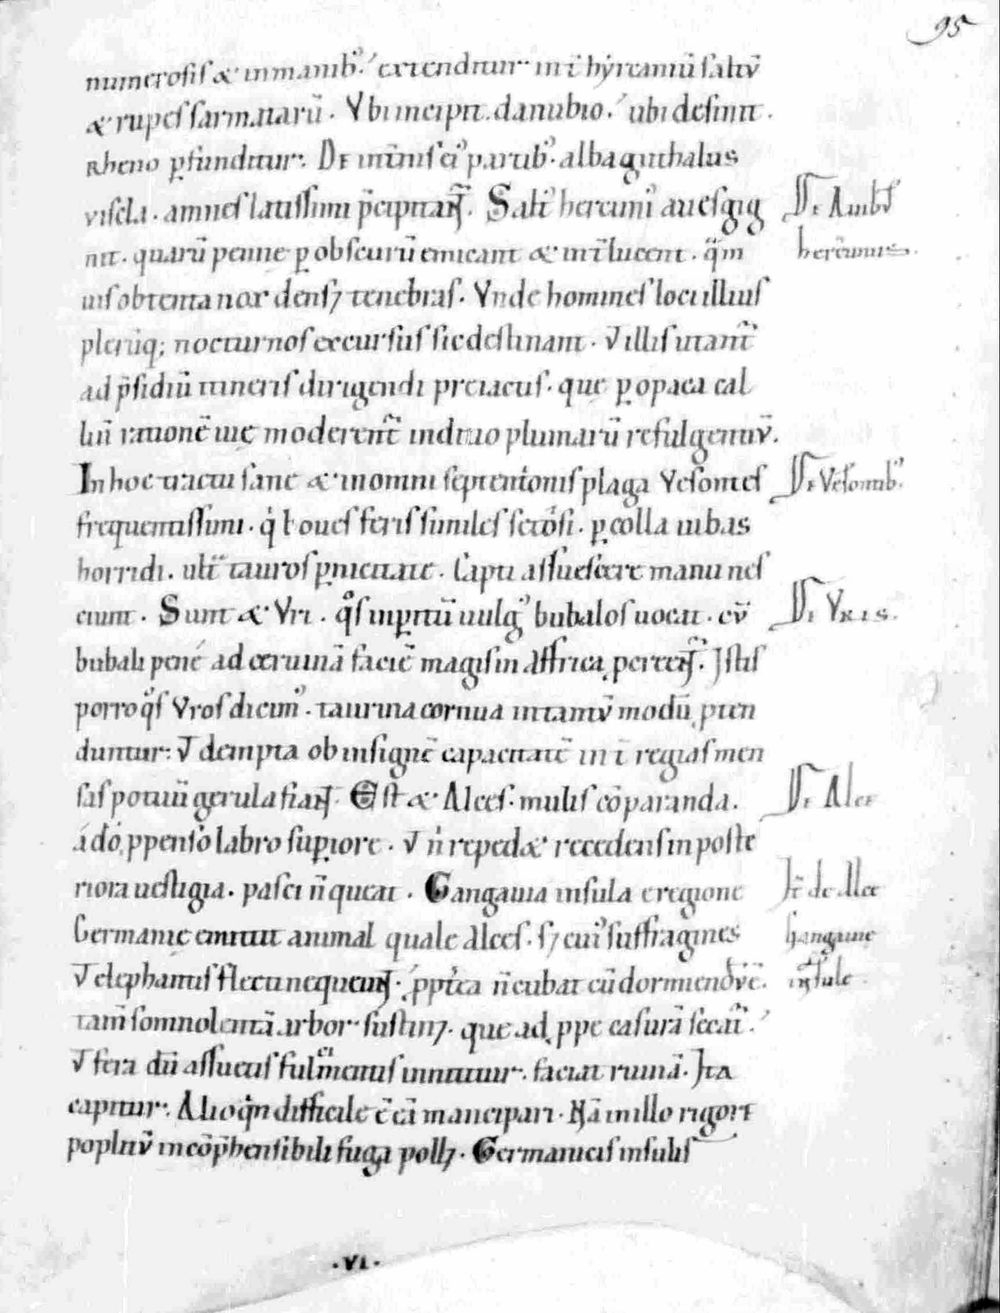 95
numerosis & inmanib᷒. extenditur int̄ hyrcaniū saltū
& rupes sarmatarū. Vbi incipit. danubio. ubi desinit.
Rheno p̲funditur. De inmīs ei᷒ partib᷒. alba guthalus
viscla. amnes latissimi p̄cipitant̃. Salt᷒ hercini᷒ aues gig
nit. quarū penne p̲ obscurū emicant & int̄lucent. q̄m
uis obtenta nox dens& tenebras. Vnde homines loci illius
pleriq; nocturnos excursus sic destinant. Vt illis utant̃
ad p̄sidiū itineris dirigendi preiactis. que p̲ opaca cal
liū rationē uię moderent̃ inditio plumarū refulgentiū.
In hoc tractu sane & in omni septentionis plaga Vesontes
frequentissimi. q̓ boues feris similes setosi. p̲ colla iubas
horridi. ult̄ tauros p̲nicitate. Capti assuescere manu nes
ciunt. Sunt & Vri. q᷒s inp̲itū uulg᷒ bubalos uocat. cū
bubali pene ad ceruinā faciē magis in Affrica p̲creent̃. Istis
porro q᷒s Vros dicim᷒. taurina cornua intantū modū p̲ten
duntur: Vt dempta ob insignē capacitatē int̄ regias men
sas potuū gerula fiant̃. Est & Alces. mulis cōparanda.
adeo p̲penso labro sup̲iore. Vt n̓ repedā& recedens in poste
riora uestigia. pasci n̄ queat. Gangauia insula eregione
Germanię emittit animal quale Alces. s; cui᷒ suffragines
Vt elephantis flecti nequeunt̃. p̲pterea n̄ cubat cū dormiendū ē.
tam̄ somnolentā arbor sustin;. que ad p̲pe casurā secat̃.
Vt fera dū assuetis fulm̄entis innititur. faciat ruinā. Ita
capitur. Alioqin difficile ē eā mancipari. Nā in illo rigore
poplitū incōp̄hensibili fuga poll;. Germanicis insulis
De Auib᷒
hercinnis.
De Vesontib᷒.
De Vris.
De Alce
It̄ de Alce
Gangauie
insule
.VI.